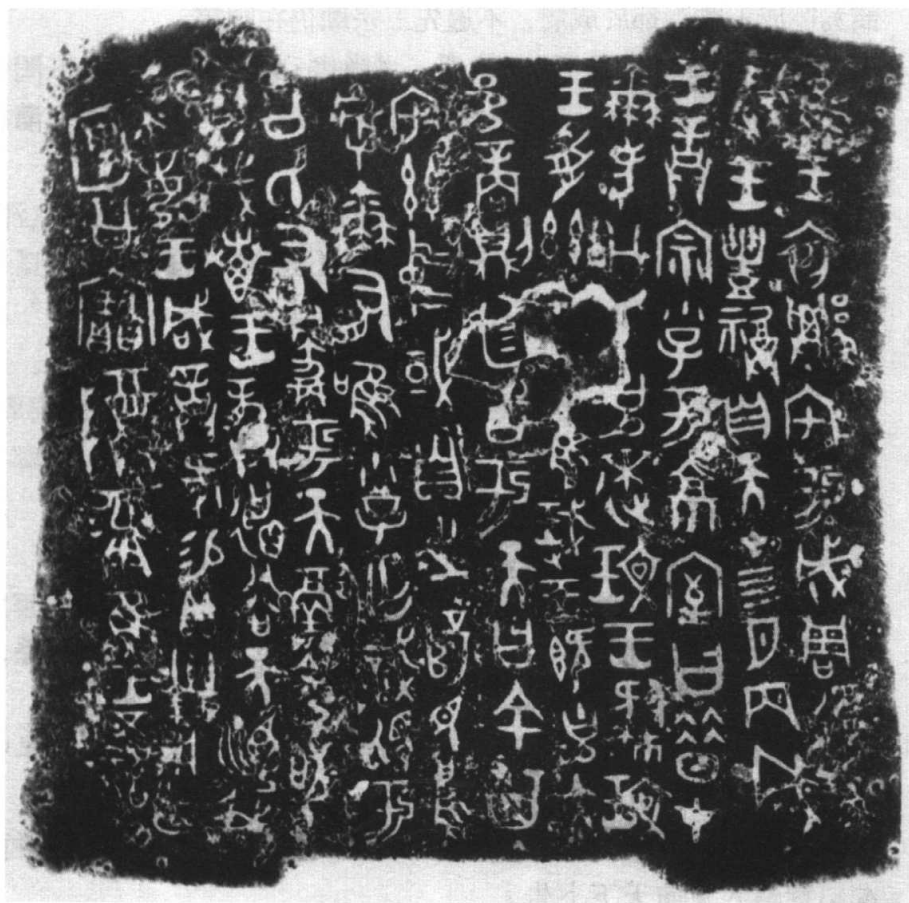 隹王初遷宅于成周復爯
王豊祼自天才四月丙戌
王誥宗小子于京室曰昔才
爾考公氏克逨玟王肆玟
王受茲隹珷王既克大
邑商則廷告于天曰余其
宅茲中或自之乂民烏
虖爾有唯小子亡識視于
公氏有爵于天徹令敬
享哉叀王龏德谷天順我
不敏王咸誥何易貝卅朋用乍
庾公寶尊彝隹王五祀